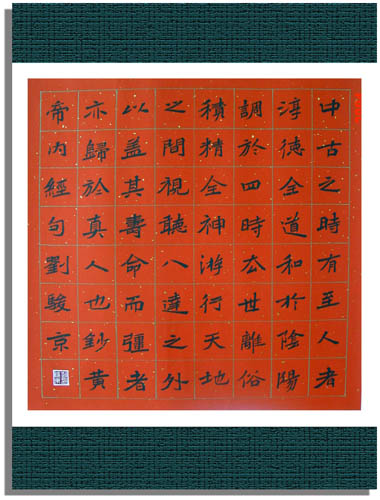 中古之時有至人者
淳德全道和於陰陽
調於四時去世離俗
積精全神游行天地
之間視聽八達之外
以盖其壽命而彊者
亦歸於真人也鈔黃
帝內經句劉駿京